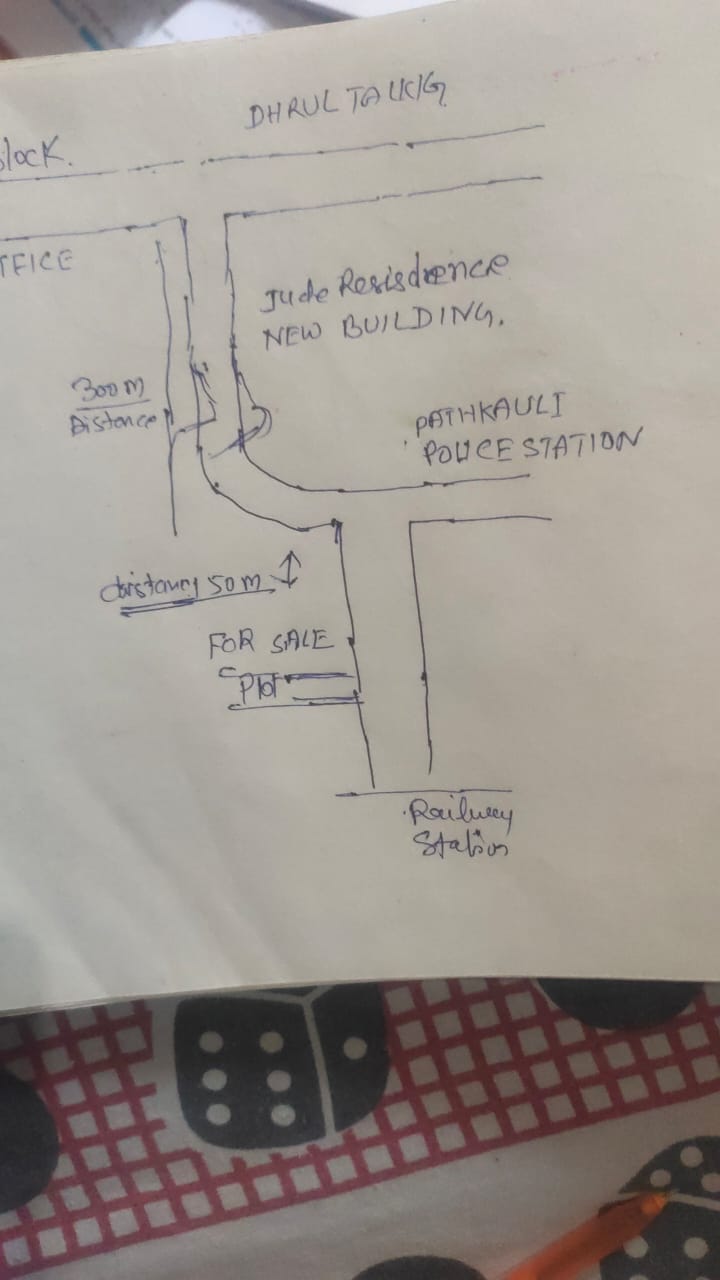 DHRUL TALKIG
Block.
OFFICE
Jude Resisdence
NEW BUILDING.
300m
Distance
PATHKAULI
POLICE STATION
distancy 50m
FOR SALE
Plot
Railway
Station